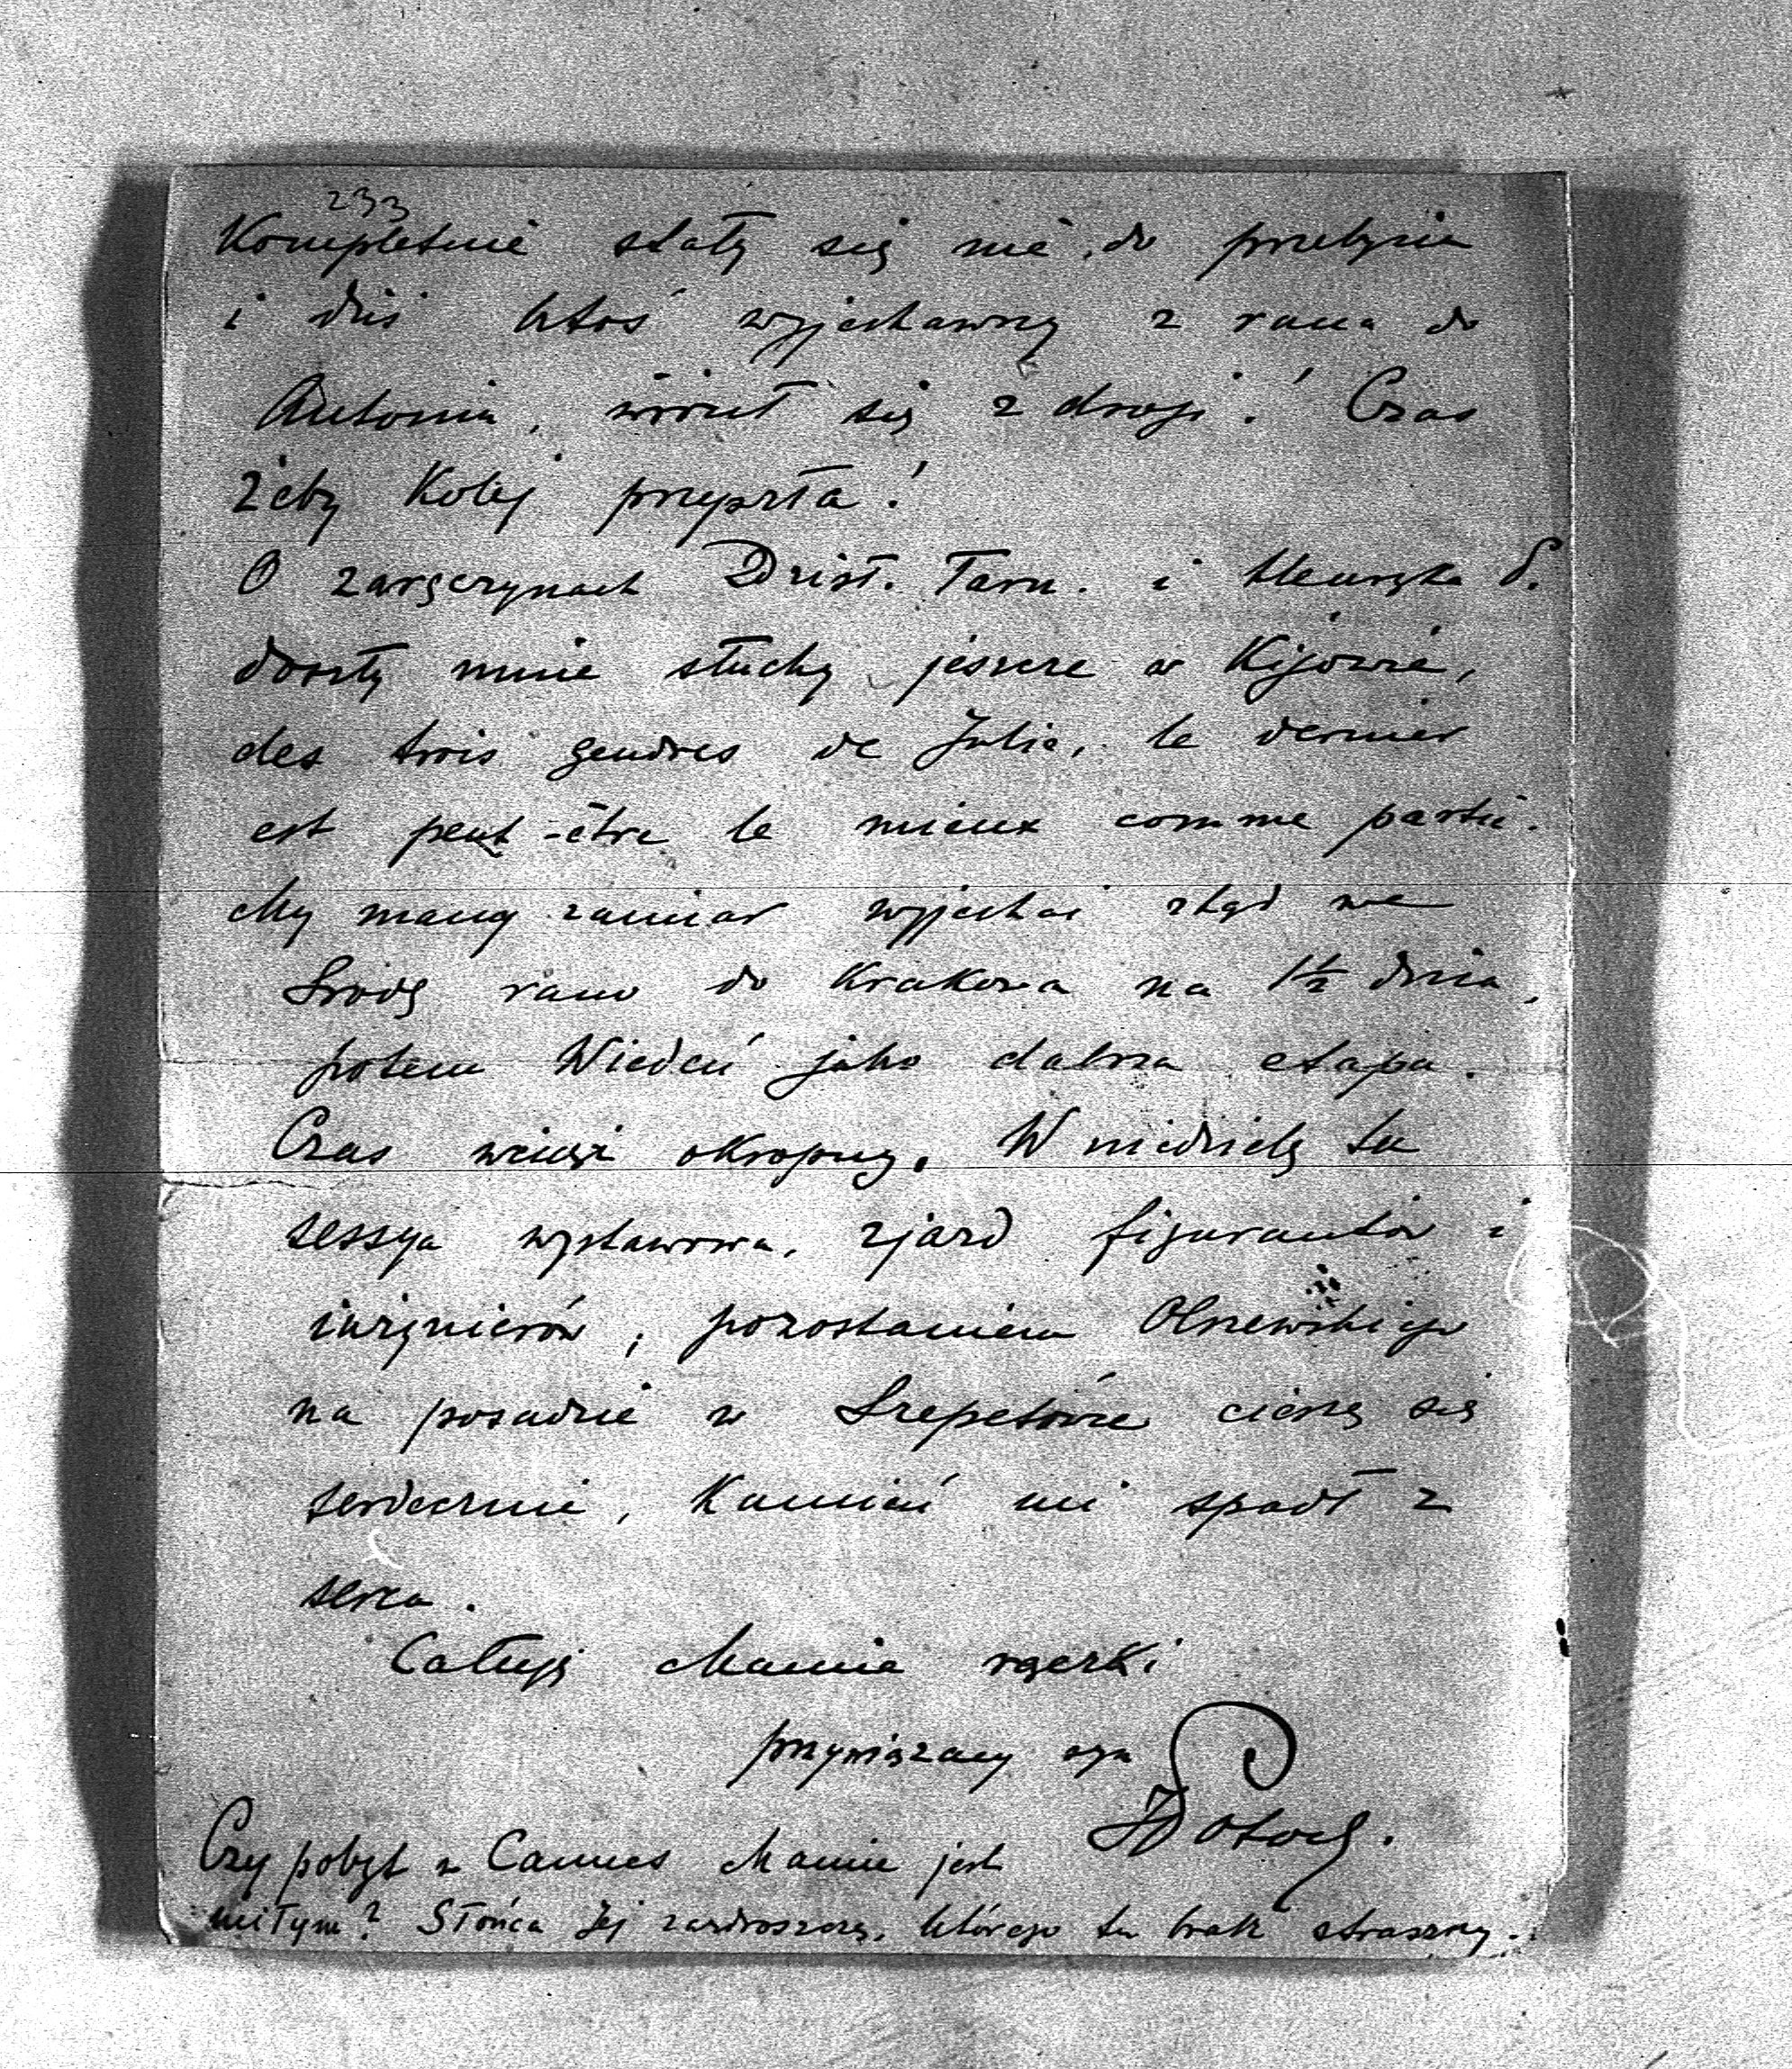 233
Kompletnie stały się nie do przebycia
i dziś ktoś wyjechawszy z rana do
Antonin, wrócił się z drogi! Czas
żeby Kolej przyszła!
O zaręczynach Dzisł. Tarn. i Henryka P.
doszły mnie słuchy jeszcze w Kijowie,
des trois gendres de Julie, le dernier
est peut-être le mieux comme partie.
My mamy zamiar wyjechać ztąd we
Środę rano do Krakowa na 1½ dnia,
potem Wiedeń jako dalsza etapa.
Czas wciąż okropny. W niedzielę tu
sessya wystawowa, zjazd figurantów i
inżynierów; pozostaniem Olszewskiego
na posadzie w Szepetówce cieszę się
serdecznie, Kamień mi spadł z
serca.
Całuję Mamie rączki
przywiązany syn
JPotocki.
Czy pobyt w Cannes Mamie jest
miłym? Słońca Jej zazdroszczę, którego tu brak straszny.